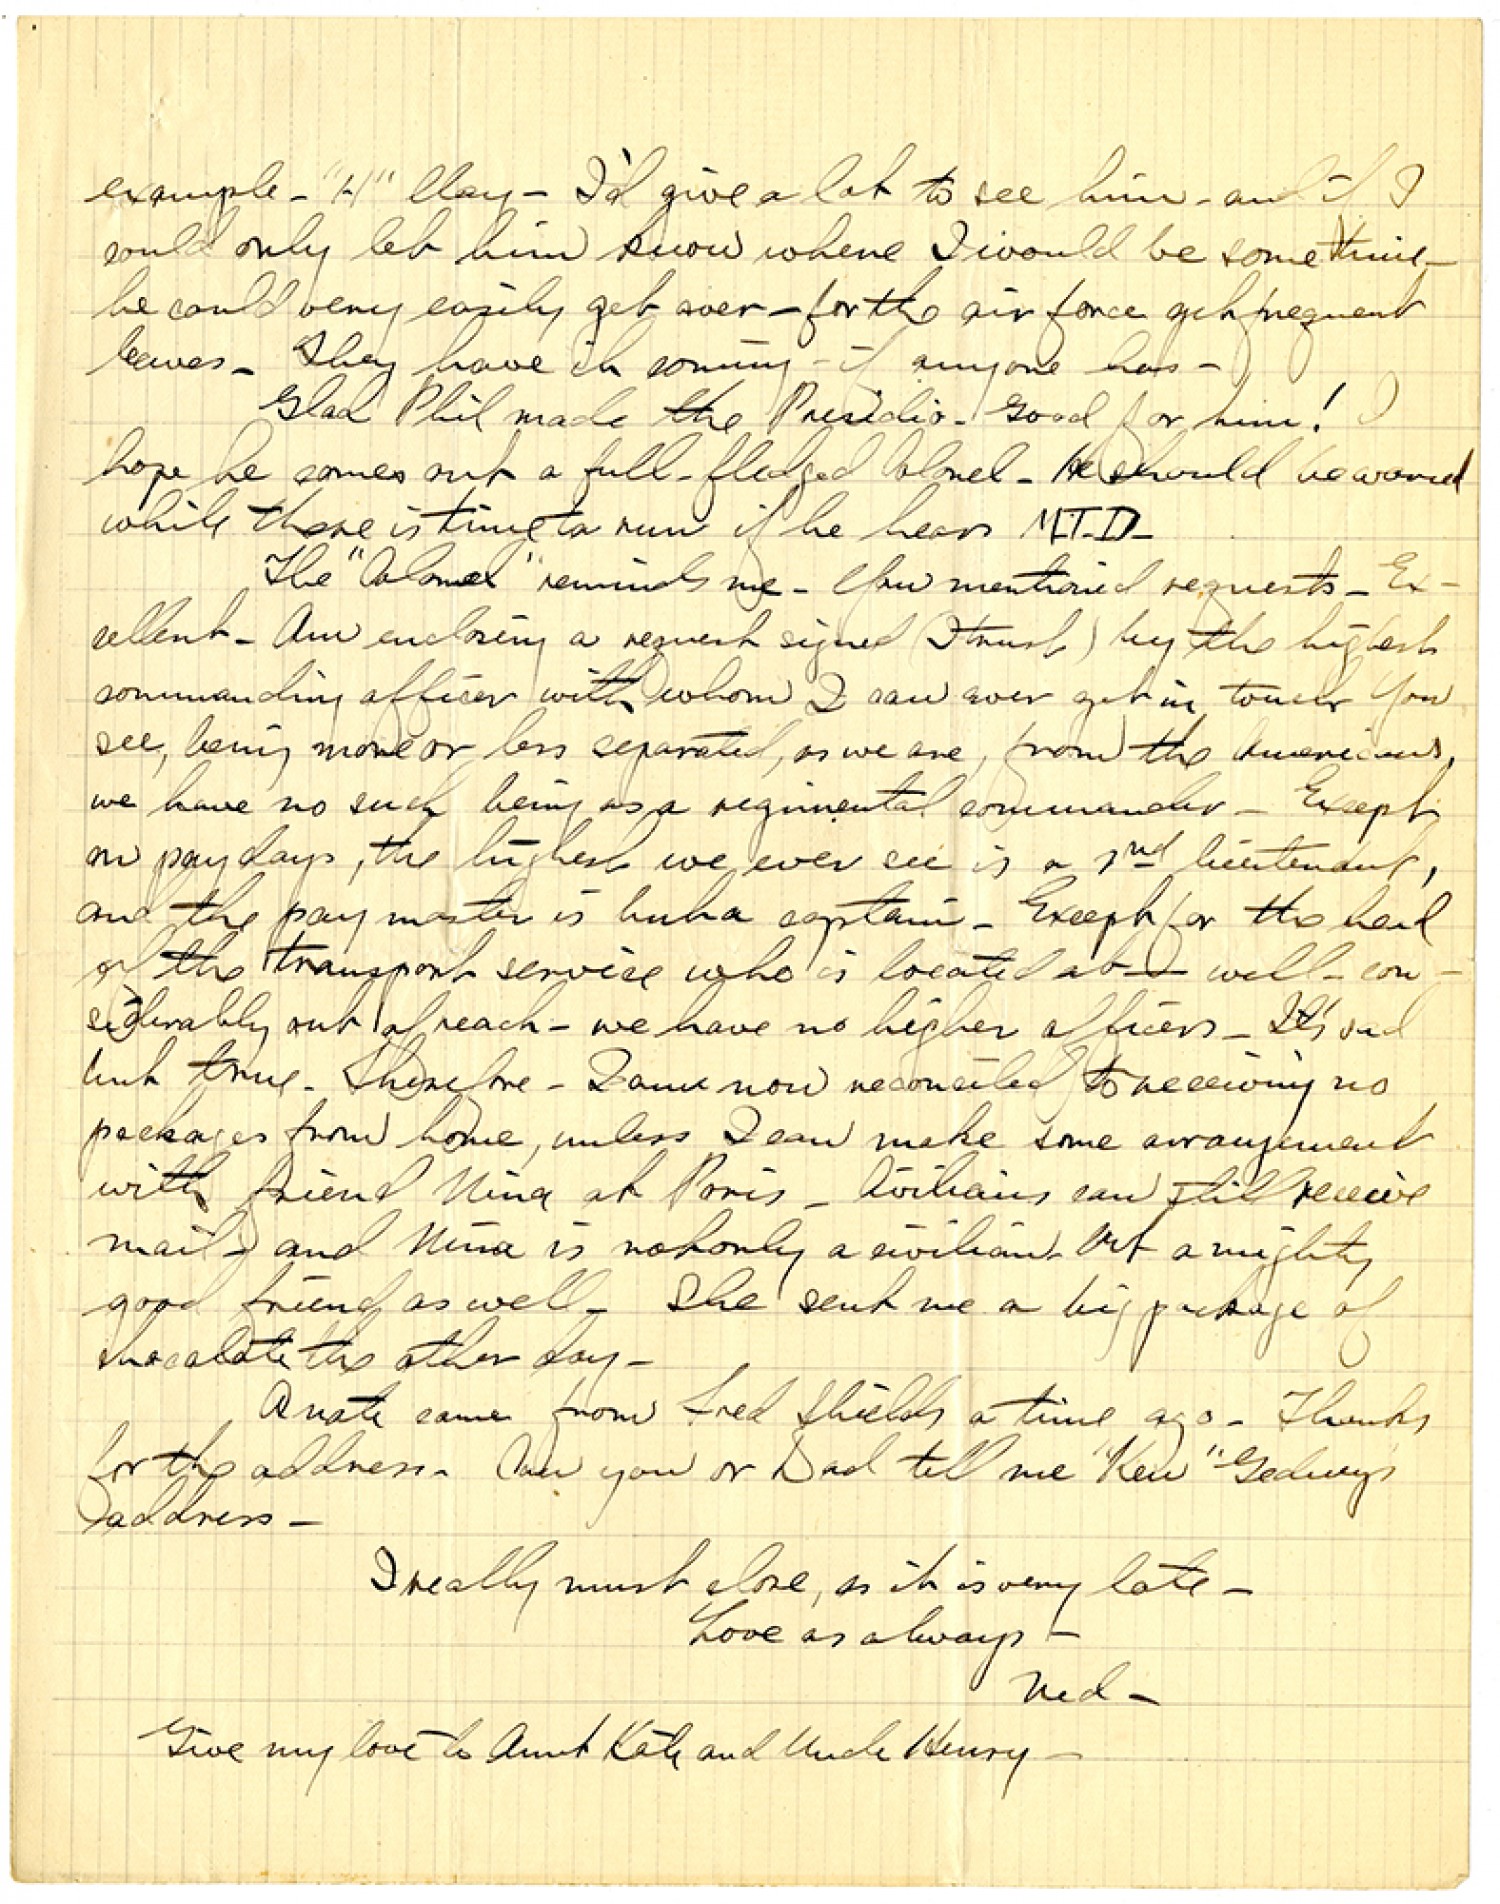 example - "H" Clay - I'd give a lot to see him - and if I
could only let him know where I would be some time -
he could very easily get over - for the air force get frequent
leaves - They have it coming - if anyone has -
Glad Phil made the Presidio - Good for him! I
hope he comes out a full-fledged Colonel - He should be warned
while there is time to run if he hears M.T.D -
The "Colonel" reminds me - You mentioned requests - Ex-
cellent - Am enclosing a request signed (I trust) by the highest
commanding officer with whom I can ever get in touch You
see, being more or less separated, as we are, from the Americans,
we have no such being as a regimental commander - Except
on pay days, the highest we ever see is a 2nd lieutenant,
and the pay master is but a captain - Except for the head
of the transport service who is located at - well - con-
siderably out of reach - we have no higher officers - It's sad
but true - Therefore - I am now reconciled to receiving no
packages from home, unless I can make some arrangement
with friend Nina at Paris - Civilians can still receive
mail - and Nina is not only a civilian but a mighty
good friend as well - She sent me a big package of
chocolate the other day -
A note came from Fred Shields a time ago - Thanks
for the address - Can you or Dad tell me "Ken"
address -
I really must close, as it is very late -
Love as always -
Ned -
Give my love to Aunt Kate and Uncle Henry -